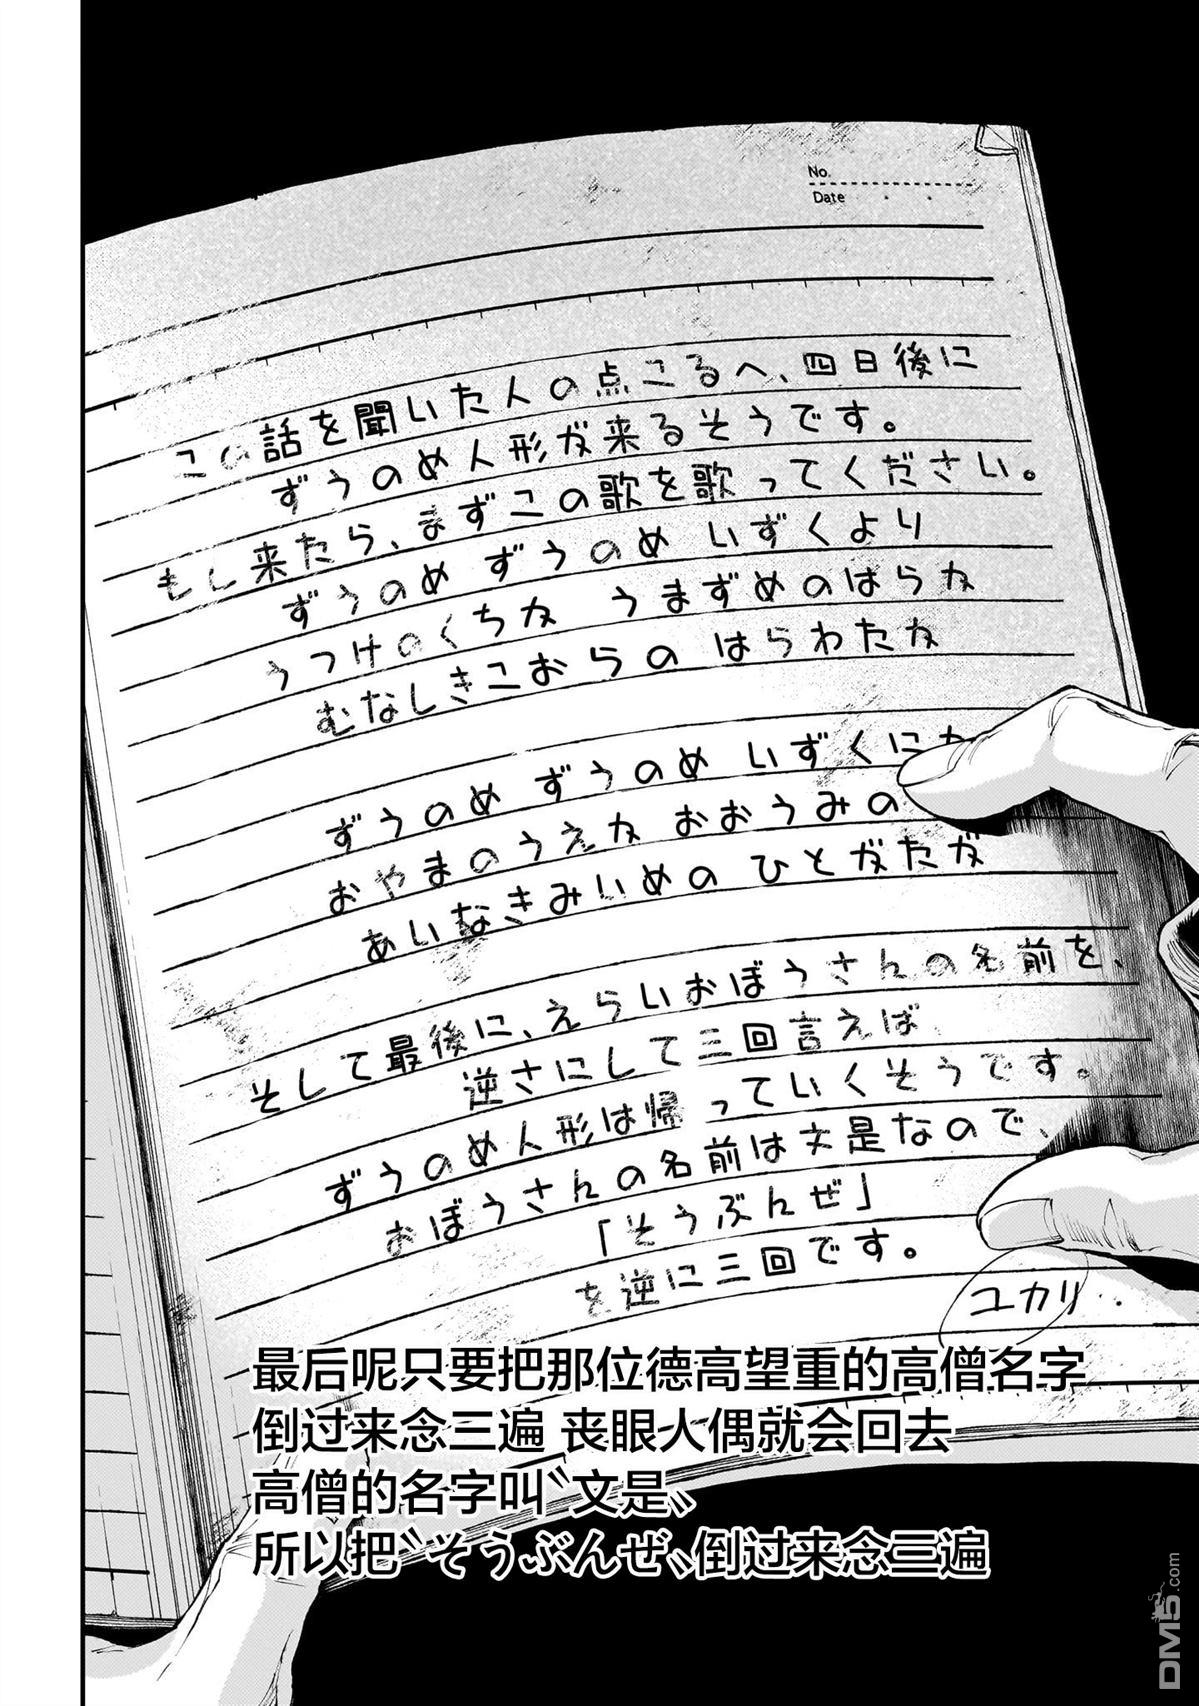 No.
Date
この話を聞いた人の点こるへ、四日後に
ずうのめ人形が来るそうです。
もし来たら、まずこの歌を歌ってください。
ずうのめ ずうのめ いずくより
うつけのくちか うまずめのはらか
むなしきこおらの はらわたか
ずうのめ ずうのめ いずくにか
おやまのうえか おおうみの
あいなきみいめの ひとがたが
そして最後に、えらいおぼうさんの名前を、
逆さにして三回言えば、
ずうのめ人形は帰っていくそうです。
おぼうさんの名前は文是なので、
「そうぶんぜ」
を逆に三回です。
ユカリ
最后呢只要把那位德高望重的高僧名字
倒过来念三遍 丧眼人偶就会回去
高僧的名字叫〝文是〟
所以把〝そうぶんぜ〟倒过来念三遍
DM5.com